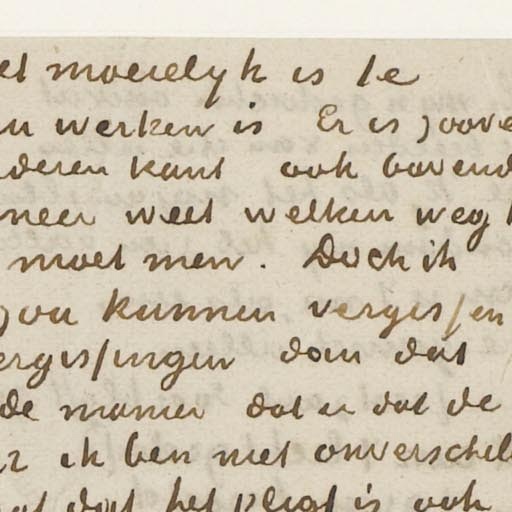 et moeielyk is te
en werken is Er is zoove
deren kant ook bovend
neer weet welken weg
moet men. Doch ik
zou kunnen vergissen
ergissingen dan dat
de manier dat er dat de
ik ben niet onverschill
dat het pligt is ook